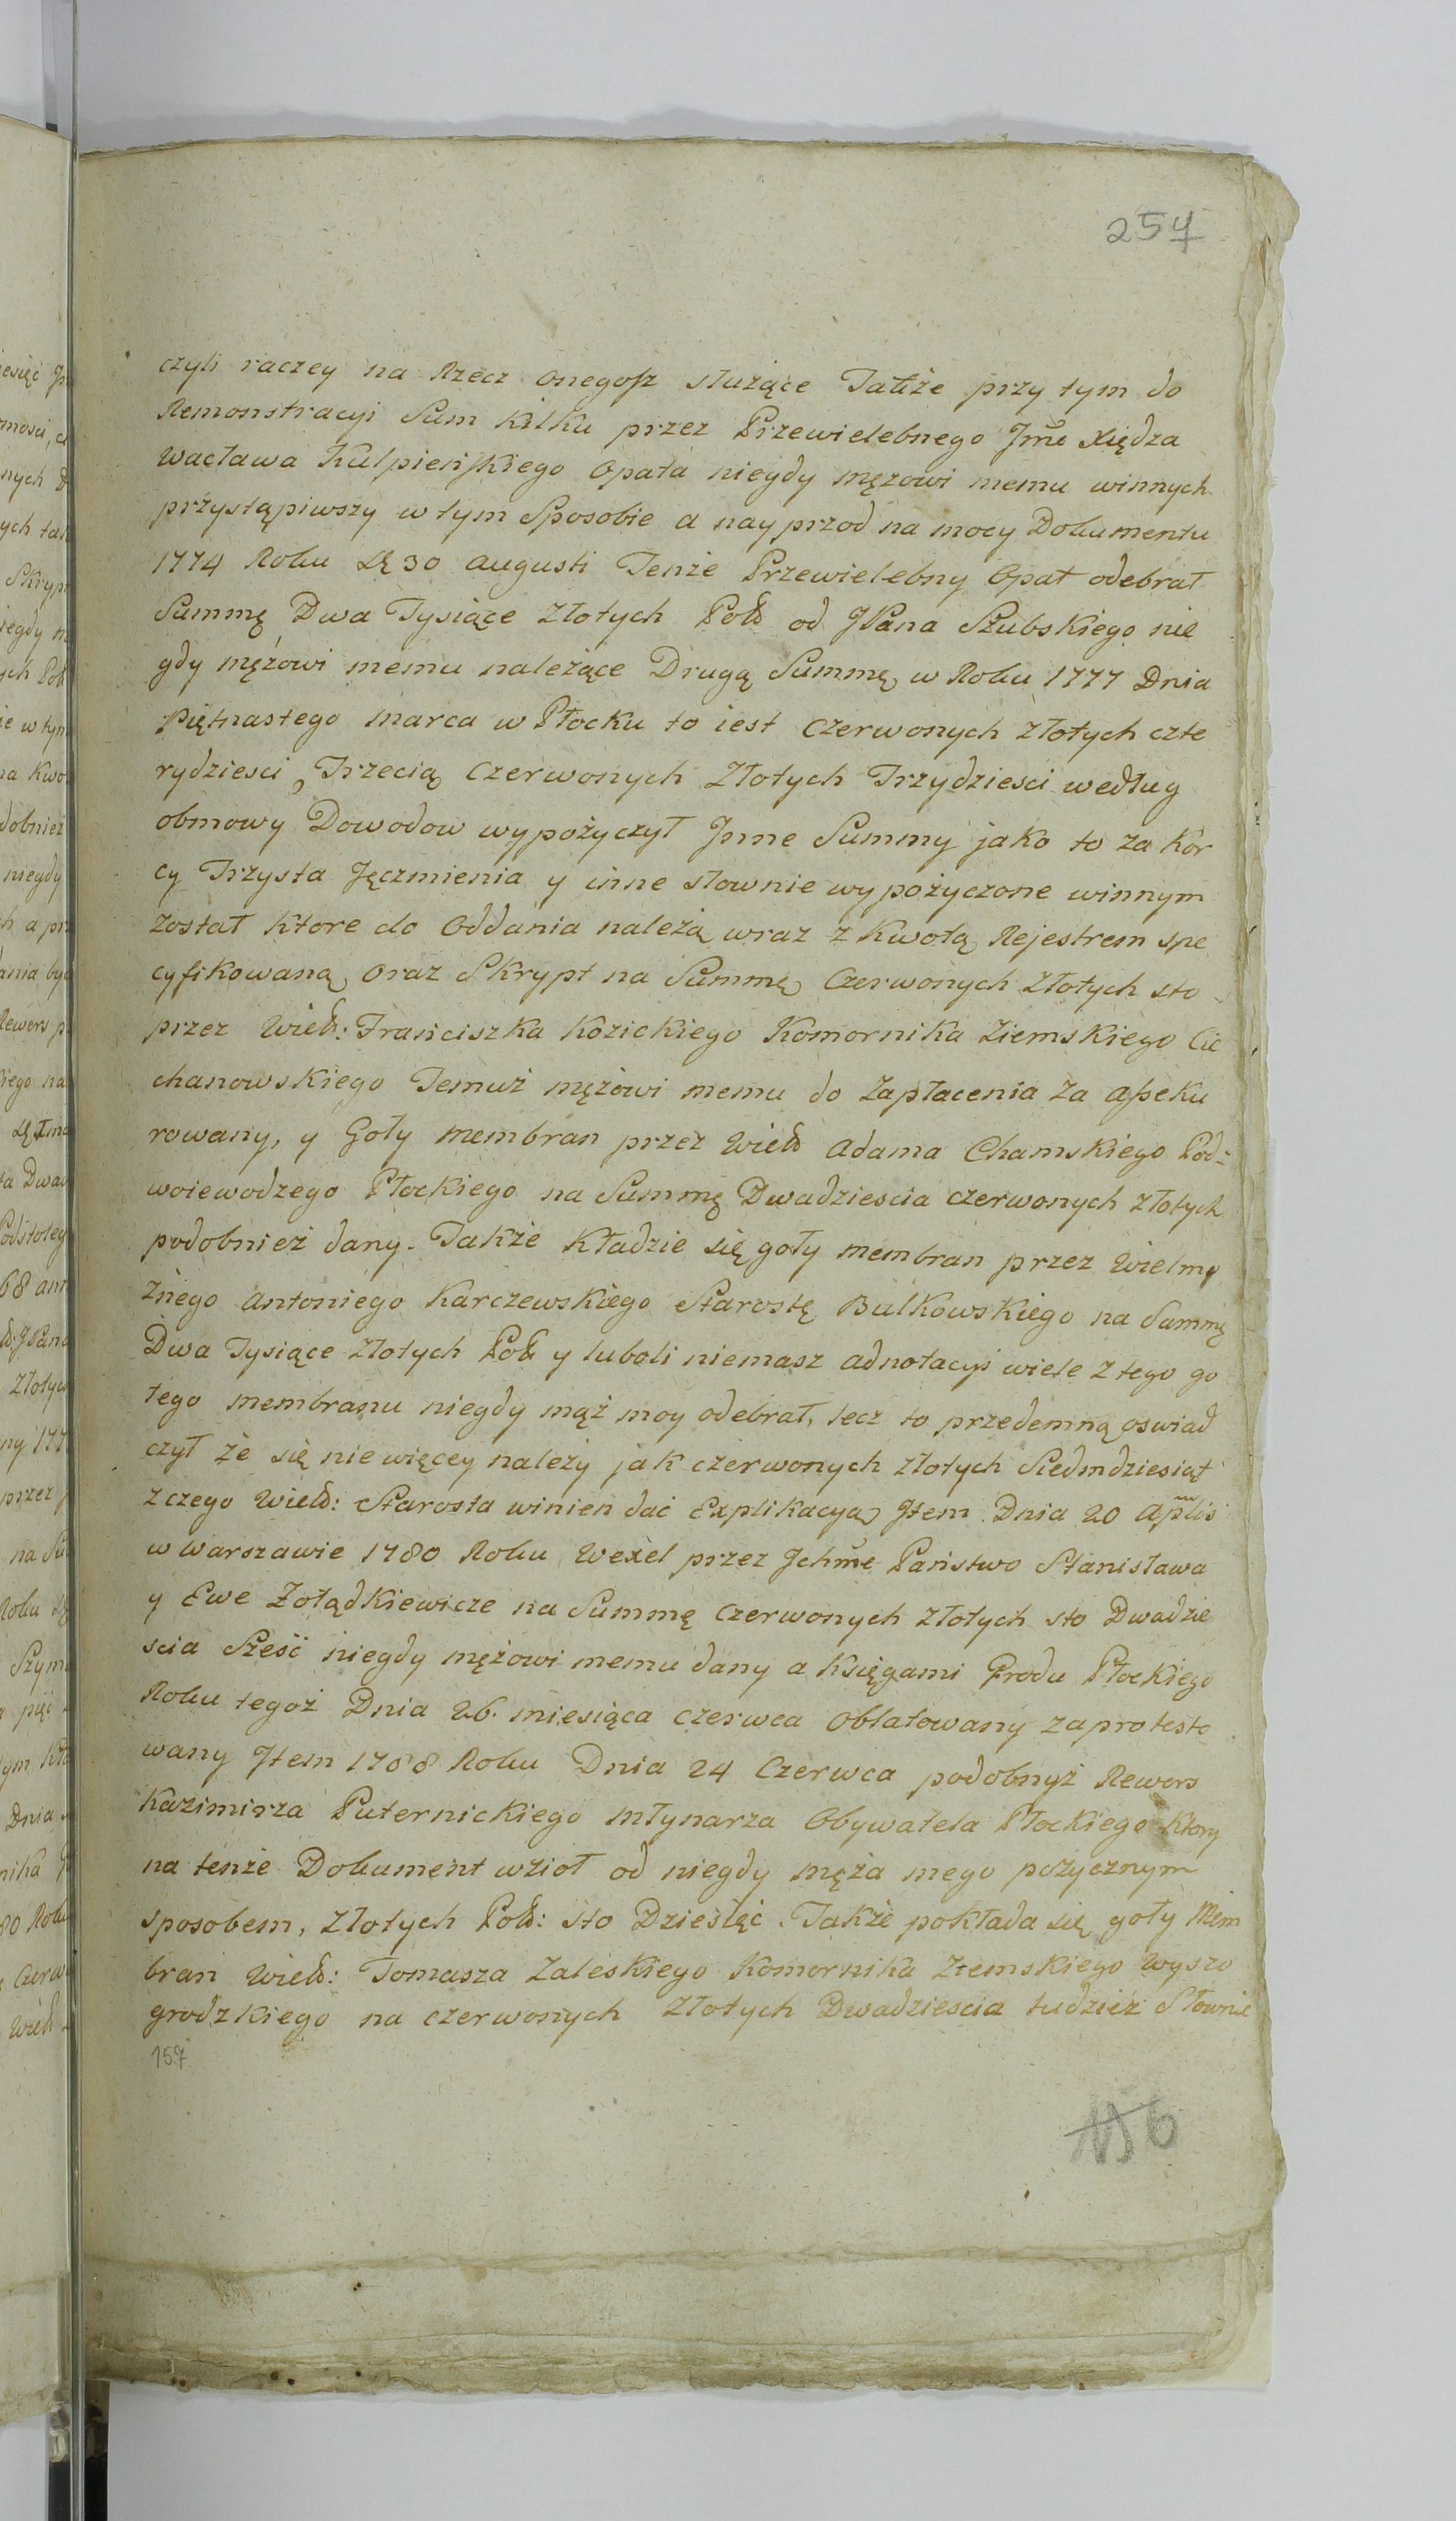 257
czyli raczey na Rzecz onegosz służące Także przy tym do
Remonstracyi Sum kilku przez Przewielebnego Jmć Xiędza
Wacława Kulpieńskiego Opata niegdy mężowi memu winnych
przystąpiwszy w tym Sposobie a nayprzod na mocy Dokumentu
1774 Roku 30 Augusti Tenże Przewielebny Opat odebrał
Summę Dwa Tysiące Złotych Pols od JPana Szubskiego nie
gdy mężowi memu należące Drugą Summę w Roku 1777 Dnia
Piętnastego Marca w Płocku to iest Czerwonych złotych czte
rydziesci, Trzecią Czerwonych Złotych Trzydziesci według
obmowy Dowodow wypożyczył Jnne Summy jako to za Kor
cy Trzysta Jęczmienia y inne słownie wypożyczone winnym
został ktore do Oddania należą wraz z Kwotą Rejestrem spe
cyfikowaną oraz Skrypt na Summę Czerwonych Złotych sto
przez Wiel: Franciszka Kozickiego Komornika Ziemskiego Cie
chanowskiego Temuż mężowi memu do Zapłacenia za asseku
rowany, y Goły membran przez Wiel Adama Chamskiego Pod:
woiewodzego Płockiego na Summę Dwadziescia czerwonych złotych
podobnież dany. Także Kładzie się goły membran przez Wielmo
żnego Antoniego Karczewskiego Starostę Bulkowskiego na Summę
Dwa Tysiące złotych Pol y luboli niemasz adnotacyi wiele z tego go
łego membranu niegdy mąż moy odebrał, lecz to przedemną oswiad
czył że się nie więcey należy jak czerwonych złotych Siedmdziesiąt
z czego Wiel: Starosta winien dać Explikacyą Jtem Dnia 20 Aplis
w Warszawie 1780 Roku Wexel przez Jchmć Państwo Stanisława
y Ewe Żołądkiewicze na Summę Czerwonych złotych sto Dwadzie
scia Sześć niegdy mężowi memu dany a Księgami Grodu Płockiego
Roku tegoż Dnia 26. miesiąca czerwca Oblatowany zaprotesto
wany Jtem 1788 Roku Dnia 24 Czerwca podobnyż Rewers
Kazimirza Puternickiego Młynarza Obywatela Płockiego ktory
na tenże Dokument wzioł od niegdy męża mego pożycznym
sposobem, Złotych Pols: sto Dziesięć. Także pokłada się goły Mem
bran Wiel: Tomasza Zaleskiego Komornika Ziemskiego Wyszo
grodzkiego na czerwonych Złotych Dwadziescia tudzież Słownie
157
156